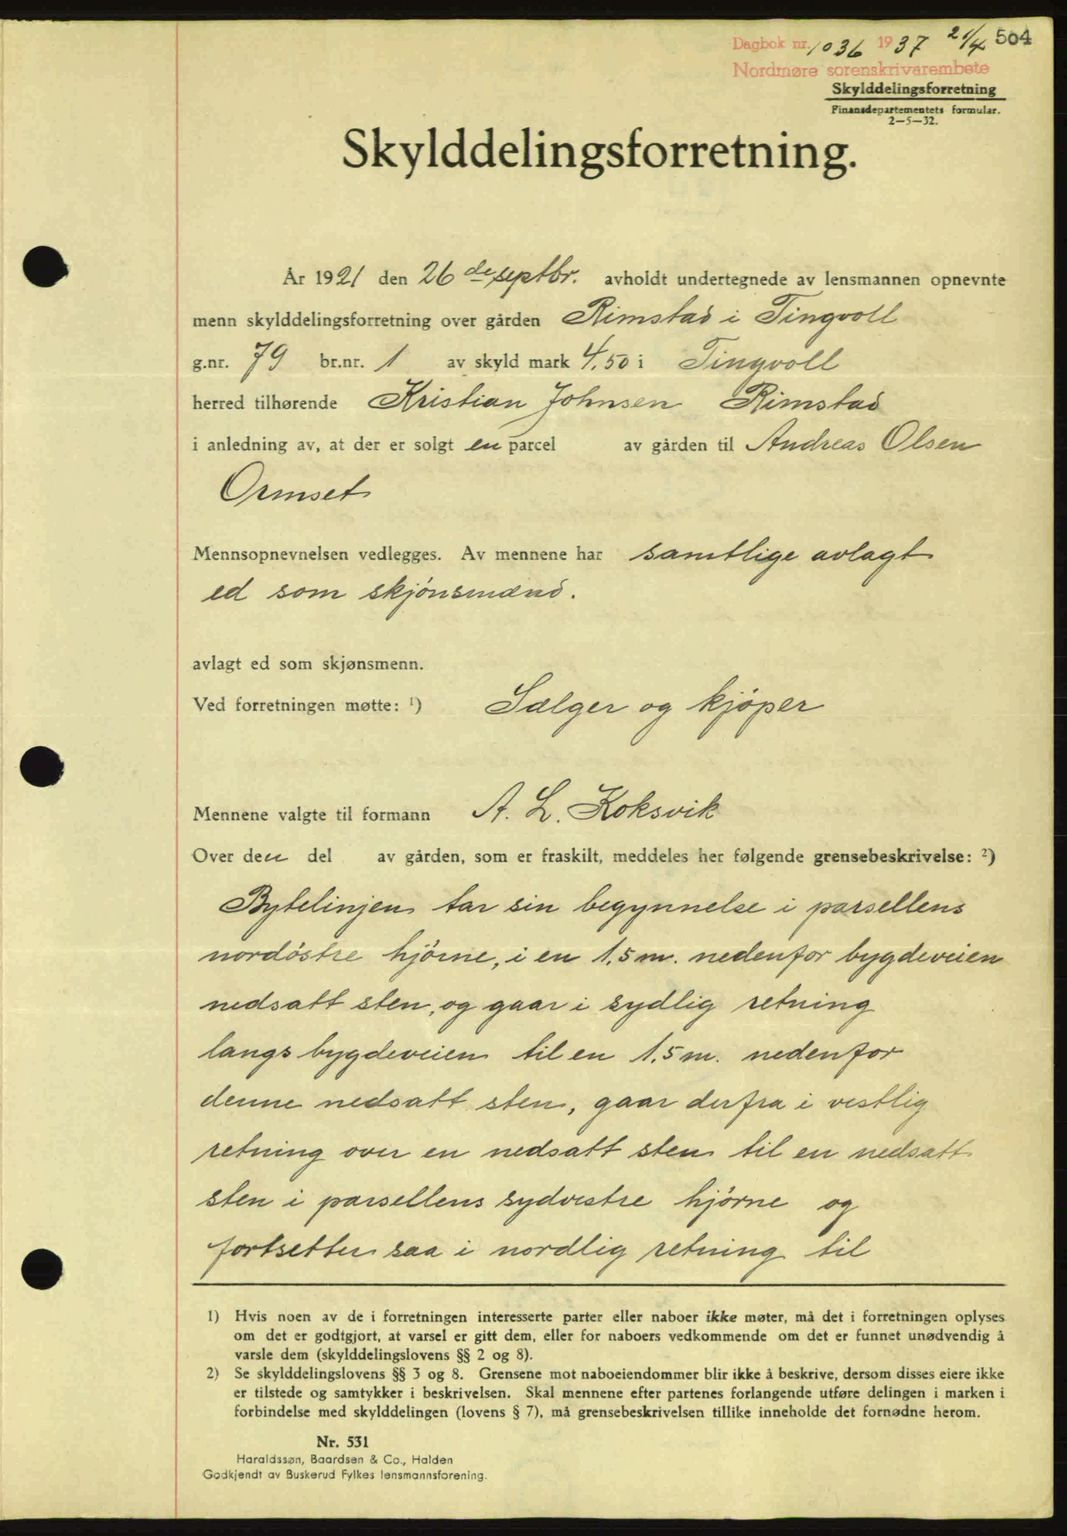 Dagbok nr. 1036 1937 21/4 504
Nordmøre sorenskrivarembete
Skylddelingsforretning
Finansdepartementets formular.
2—5—32.
Skylddelingsforretning.
År 1921 den 26 de septbr. avholdt undertegnede av lensmannen opnevnte
menn skylddelingsforretning over gården Rimstad i Tingvoll
g.nr. 79 br.nr. 1 av skyld mark 4,50 i Tingvoll
herred tilhørende Kristian Johnsen Rimstad
i anledning av, at der er solgt en parcel av gården til Andreas Olsen
Ormset
Mennsopnevnelsen vedlegges. Av mennene har samtlige avlagt
ed som skjönsmænd.
avlagt ed som skjønsmenn.
Ved forretningen møtte: ¹) Sælger og kjöper
Mennene valgte til formann A. L. Koksvik
Over den del av gården, som er fraskilt, meddeles her følgende grensebeskrivelse: ²)
Bytelinjen tar sin begynnelse i parsellens
nordöstre hjörne, i en 1,5 m. nedenfor bygdeveien
nedsatt sten, og gaar i sydlig retning
langs bygdeveien til en 1,5 m. nedenfor
denne nedsatt sten, gaar derfra i vestlig
retning over en nedsatt sten til en nedsatt
sten i parsellens sydvestre hjörne og
fortsetter saa i nordlig retning til
1) Hvis noen av de i forretningen interesserte parter eller naboer ikke møter, må det i forretningen oplyses
om det er godtgjort, at varsel er gitt dem, eller for naboers vedkommende om det er funnet unødvendig å
varsle dem (skylddelingslovens §§ 2 og 8).
2) Se skylddelingslovens §§ 3 og 8. Grensene mot naboeiendommer blir ikke å beskrive, dersom disses eiere ikke
er tilstede og samtykker i beskrivelsen. Skal mennene efter partenes forlangende utføre delingen i marken i
forbindelse med skylddelingen (lovens § 7), må grensebeskrivelsen tillike inneholde det fornødne herom.
Nr. 531
Haraldssøn, Baardsen & Co., Halden
Godkjendt av Buskerud Fylkes lensmannsforening.